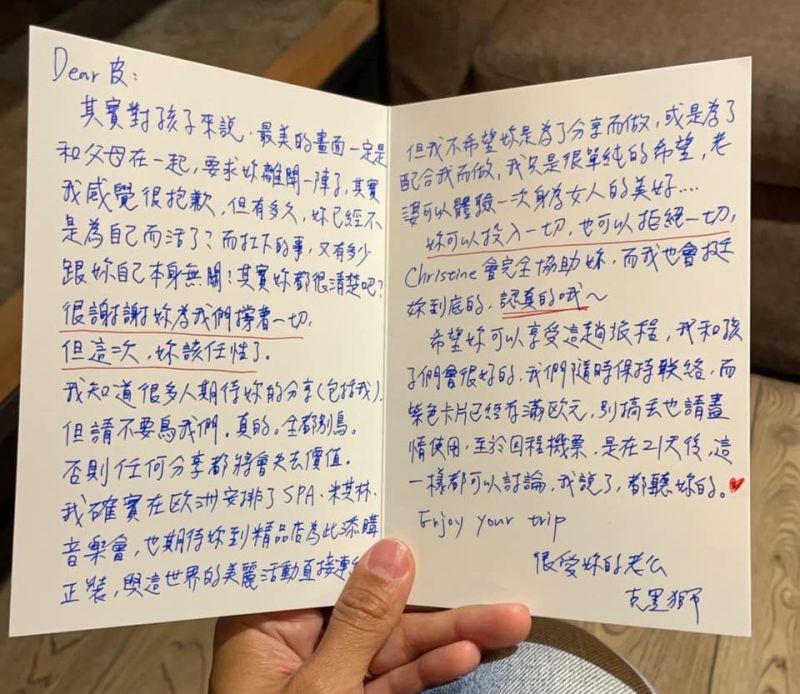 Dear 皮：
其實對孩子來說，最美的畫面一定是
和父母在一起，要求妳離開一陣子，其實
我感覺很抱歉，但有多久，妳已經不
是為自己而活了？而扛下的事，又有多少
跟妳自己本身無關？其實妳都很清楚吧？
很謝謝妳為我們撐著一切，
但這一次，妳該任性了。
我知道很多人期待妳的分享（包括我），
但請不要鳥我們。真的。全都別鳥。
否則任何分享都將會失去價值。
我確實在歐洲安排了SPA、米其林、
音樂會，也期待妳到精品店為此添購
正裝，與這世界的美麗活動直接
但我不希望妳是為了分享而做，或是為了
配合我而做，我只是很單純的希望，老
婆可以體驗一次身為女人的美好....
妳可以投入一切，也可以拒絕一切，
Christine會完全協助妳，而我也會挺
妳到底的，認真的哦～
希望妳可以享受這趟旅程，我和孩
子們會很好的，我們隨時保持联絡，而
紫色卡片已經存滿歐元，別搞丟也請盡
情使用，至於回程機票，是在21天後，這
一樣都可以討論，我說了，都聽妳的。
Enjoy your trip
很愛妳的老公
克里獅